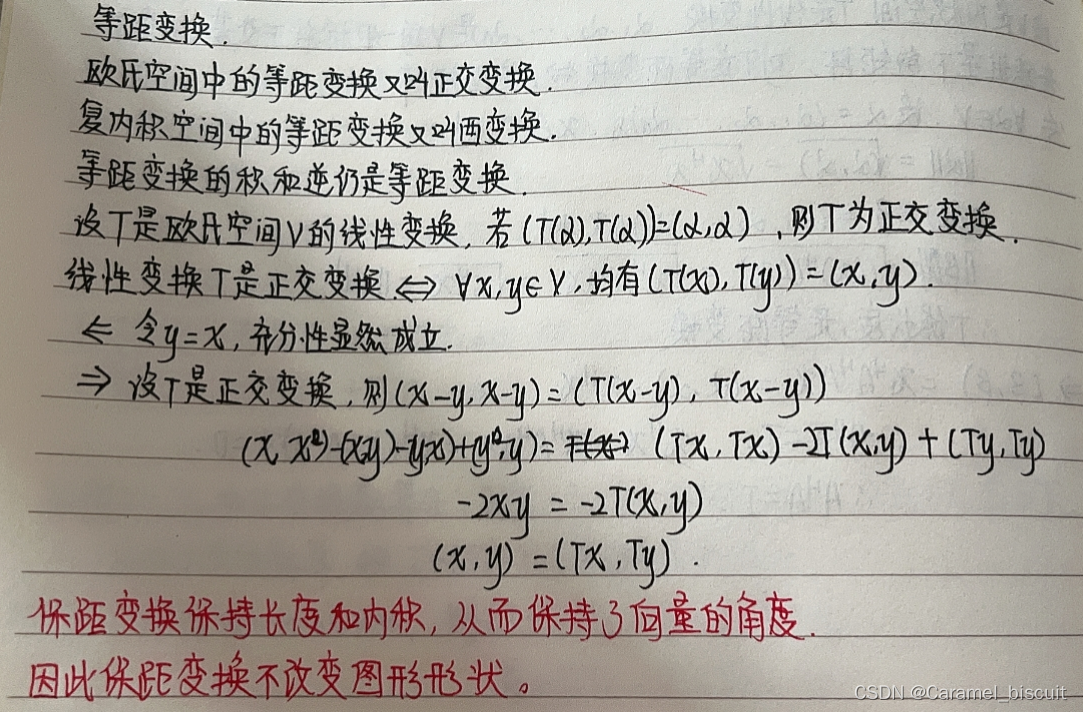 等距变换.
欧氏空间中的等距变换又叫正交变换.
复内积空间中的等距变换又叫酉变换.
等距变换的积和逆仍是等距变换.
设T是欧氏空间V的线性变换, 若(T(α),T(α))=(α,α), 则T为正交变换.
线性变换T是正交变换 ⇔ ∀x,y∈V, 均有(T(x),T(y))=(x,y).
⇐ 令y=x, 充分性显然成立.
⇒ 设T是正交变换, 则(x-y,x-y)=(T(x-y), T(x-y))
(x,x)-(x,y)-(y,x)+(y,y)= (Tx,Tx)-2T(x,y)+(Ty,Ty)
-2xy = -2T(x,y)
(x,y)=(Tx,Ty).
保距变换保持长度和内积, 从而保持了向量的角度.
因此保距变换不改变图形形状。
CSDN @Caramel_biscuit